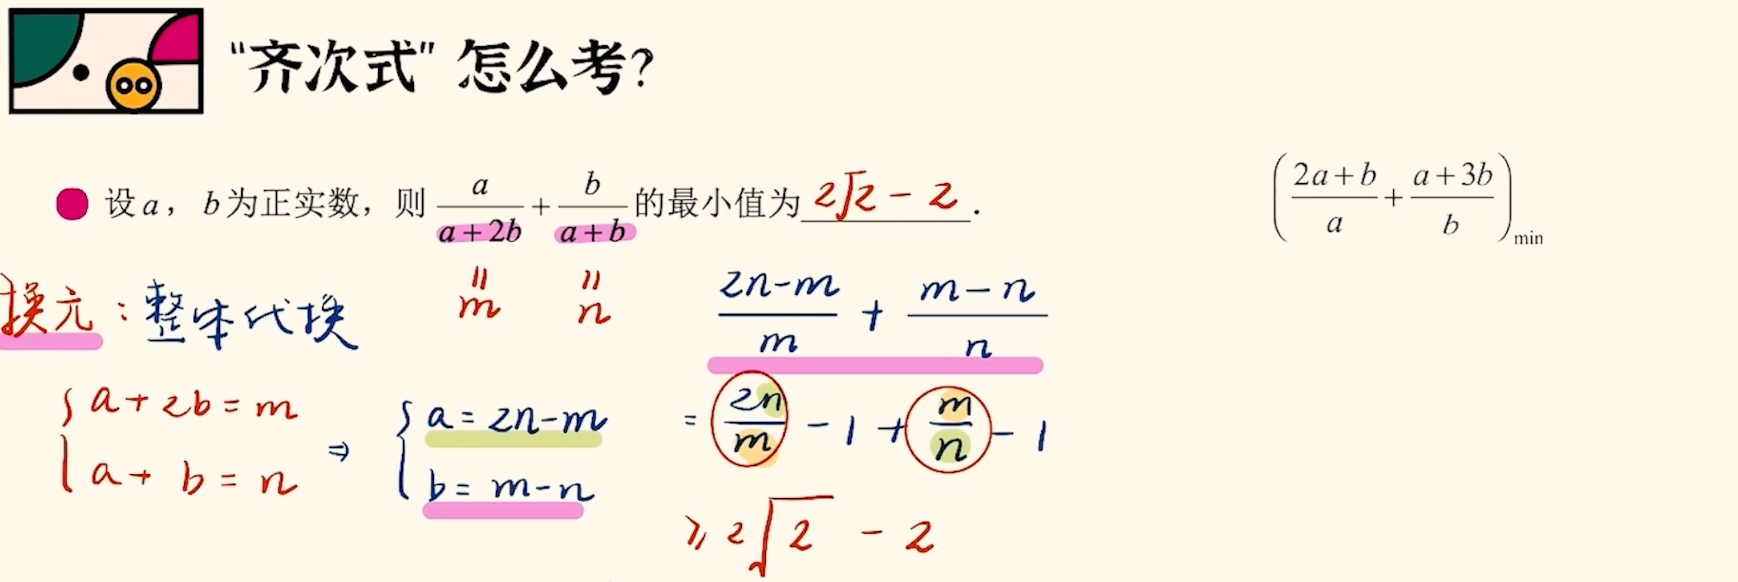 “齐次式”怎么考?
设 a, b 为正实数, 则 \frac{a}{a+2b} + \frac{b}{a+b} 的最小值为 2√2 - 2 .
\left( \frac{2a+b}{a} + \frac{a+3b}{b} \right)_{min}
= m = n
换元: 整体代换
\frac{2n-m}{m} + \frac{m-n}{n}
{ a+2b=m
a+b=n
⇒ { a=2n-m
b=m-n
= \frac{2n}{m} - 1 + \frac{m}{n} - 1
≥ 2√2 - 2